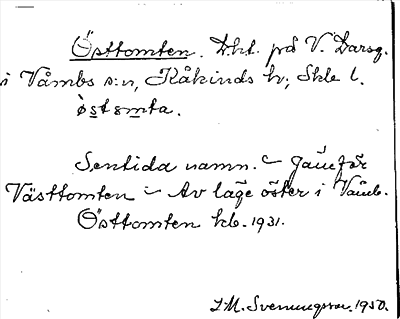 Östtomten. Dbt. på V. Darsg.
i Våmbs s:n, Kåkinds hv; Skbl l.
östsmta.
Sentida namn. ~ Jämför
Västtomten ~ Av läge öster i Våmb.
Östtomten kb. 1931.
J. M. Svenungsson. 1950.